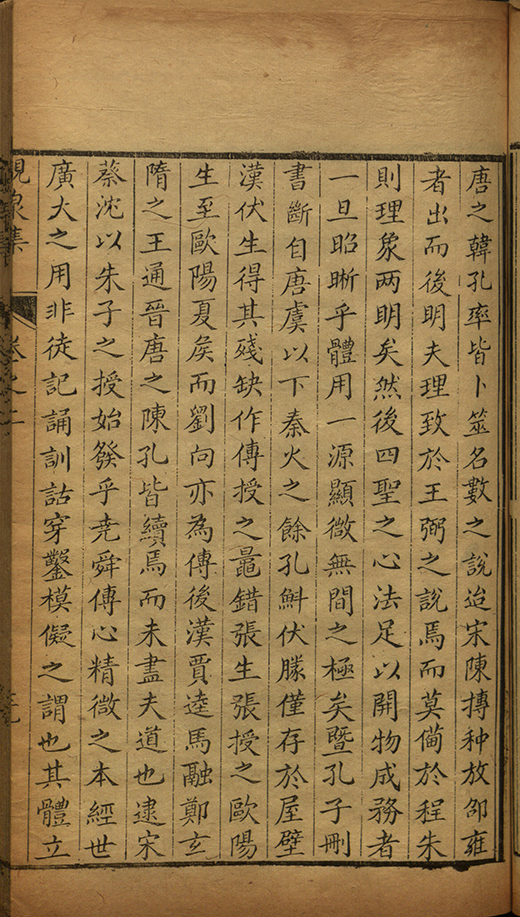 唐之韓孔率皆卜筮名數之說迨宋陳摶种放邵雍
者出而後明夫理致於王弼之說焉而莫備於程朱
則理象两明矣然後四聖之心法足以開物成務者
一旦昭晰乎體用一源顯微無間之極矣曁孔子刪
書斷自唐虞以下秦火之餘孔鮒伏勝僅存於屋壁
漢伏生得其殘缺作傳授之鼂錯張生張授之歐陽
生至歐陽夏矦而劉向亦為傳後漢賈逵馬融鄭玄
隋之王通晉唐之陳孔皆續焉而未盡夫道也逮宋
蔡沈以朱子之授始發乎尭舜傳心精微之本經世
廣大之用非徒記誦訓詁穿鑿模儗之謂也其體立
峴泉集
卷之二